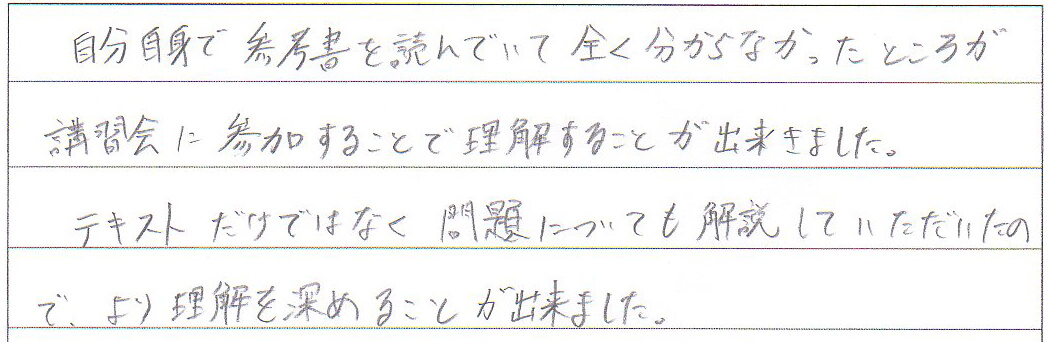 自分自身で参考書を読んでいて全く分からなかったところが
講習会に参加することで理解することが出来きました。
テキストだけではなく問題についても解説していただいたの
で、より理解を深めることが出来ました。